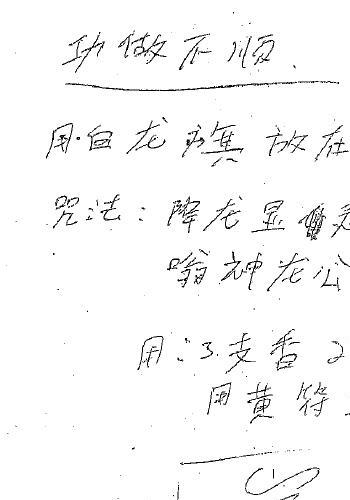 功做不顺.
用.白龙旗放在
咒法：降龙显灵
嗡神龙公
用：3.支香2
用黄符